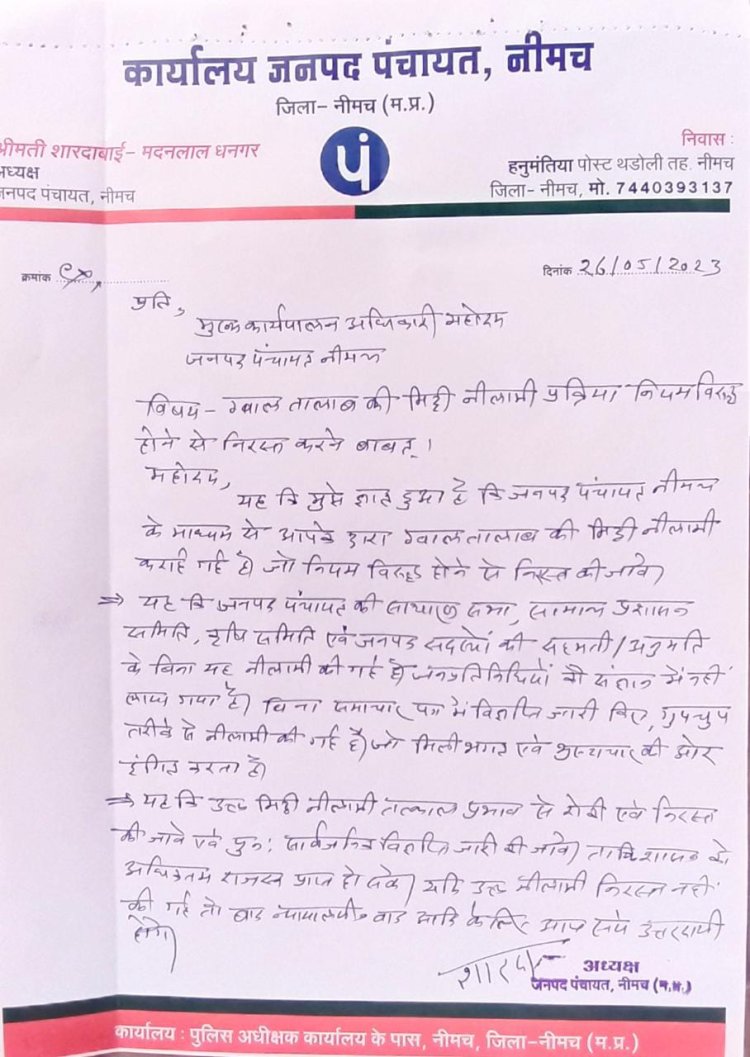 कार्यालय जनपद पंचायत, नीमच
जिला- नीमच (म.प्र.)
श्रीमती शारदाबाई- मदनलाल धनगर
अध्यक्ष
जनपद पंचायत, नीमच
पं
निवास :
हनुमंतिया पोस्ट थडोली तह. नीमच
जिला- नीमच, मो. 7440393137
क्रमांक
दिनांक 26/05/2023
प्रति,
मुख्य कार्यपालन अधिकारी महोदय
जनपद पंचायत नीमच
विषय - ग्वाल तालाब की मिट्टी नीलामी प्रक्रिया नियम विरुद्ध
होने से निरस्त करने बाबत् ।
महोदय,
यह कि मुझे ज्ञात हुआ है कि जनपद पंचायत नीमच
के माध्यम से आपके द्वारा ग्वाल तालाब की मिट्टी नीलामी
कराई गई है। जो नियम विरुद्ध होने से निरस्त की जावे।
⇒ यह कि जनपद पंचायत की साधारण सभा, सामान्य प्रशासन
समिति, कृषि समिति एवं जनपद सदस्यों की सहमती/अनुमति
के बिना यह नीलामी की गई है। जनप्रतिनिधियों के संज्ञान में नहीं
लाया गया है। बिना समाचार पत्र में विज्ञप्ति जारी किए, गुपचुप
तरीके से नीलामी की गई है। जो मिली भगत एवं भ्रष्टाचार की ओर
इंगित करता है।
⇒ यह कि उक्त मिट्टी नीलामी तत्काल प्रभाव से रोकी एवं निरस्त
की जावे एवं पुनः सार्वजनिक विज्ञप्ति जारी की जावे। ताकि शासन को
अधिकतम राजस्व प्राप्त हो सके। यदि उक्त नीलामी निरस्त नहीं
की गई तो बाद न्यायालयीन वाद आदि के लिए आप स्वयं उत्तरदायी
होंगे।
शारदा
अध्यक्ष
जनपद पंचायत, नीमच (म.प्र.)
कार्यालय : पुलिस अधीक्षक कार्यालय के पास, नीमच, जिला-नीमच (म.प्र.)